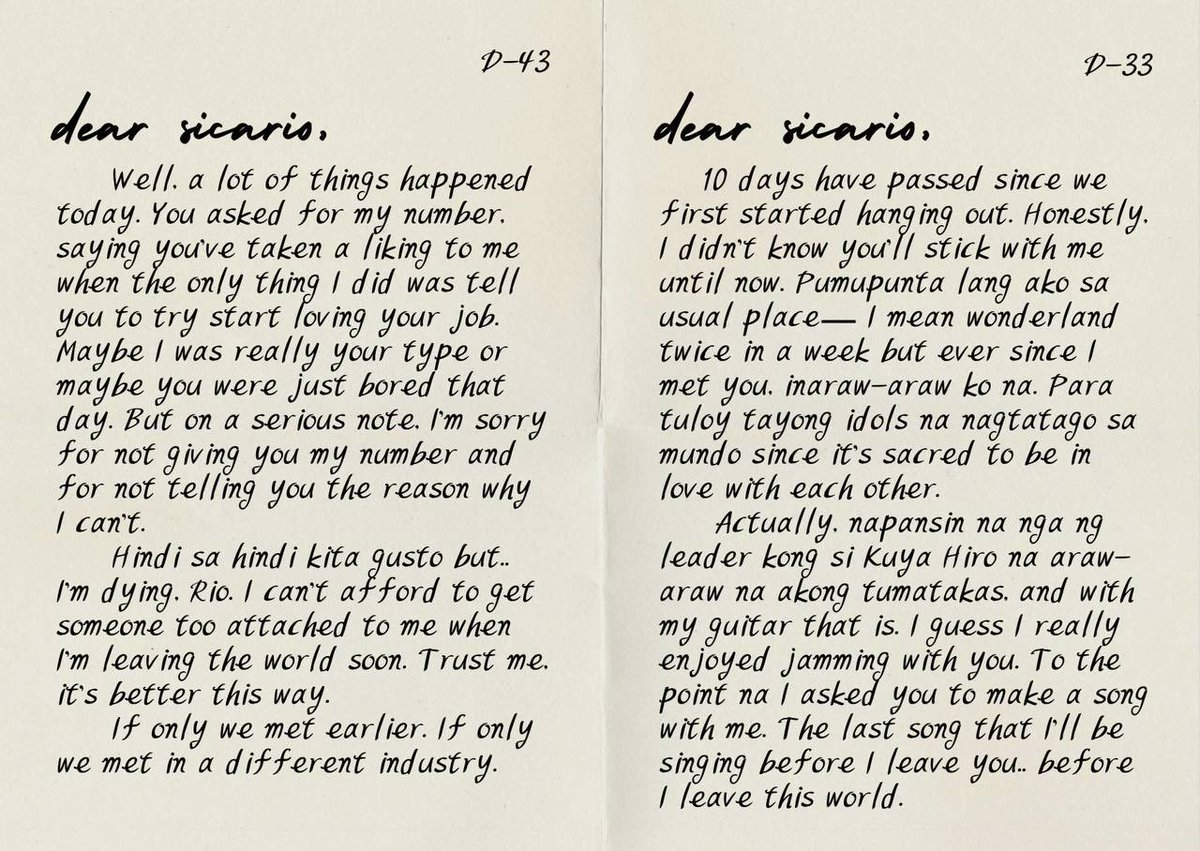 D-43
dear sicario,
Well, a lot of things happened
today. You asked for my number,
saying you've taken a liking to me
when the only thing I did was tell
you to try start loving your job.
Maybe I was really your type or
maybe you were just bored that
day. But on a serious note, I'm sorry
for not giving you my number and
for not telling you the reason why
I can't.
Hindi sa hindi kita gusto but..
I'm dying, Rio. I can't afford to get
someone too attached to me when
I'm leaving the world soon. Trust me,
it's better this way.
If only we met earlier. If only
we met in a different industry.
D-33
dear sicario,
10 days have passed since we
first started hanging out. Honestly,
I didn't know you'll stick with me
until now. Pumupunta lang ako sa
usual place— I mean wonderland
twice in a week but ever since I
met you, inaraw-araw ko na. Para
tuloy tayong idols na nagtatago sa
mundo since it's sacred to be in
love with each other.
Actually, napansin na nga ng
leader kong si Kuya Hiro na araw-
araw na akong tumatakas, and with
my guitar that is. I guess I really
enjoyed jamming with you. To the
point na I asked you to make a song
with me. The last song that I'll be
singing before I leave you.. before
I leave this world.